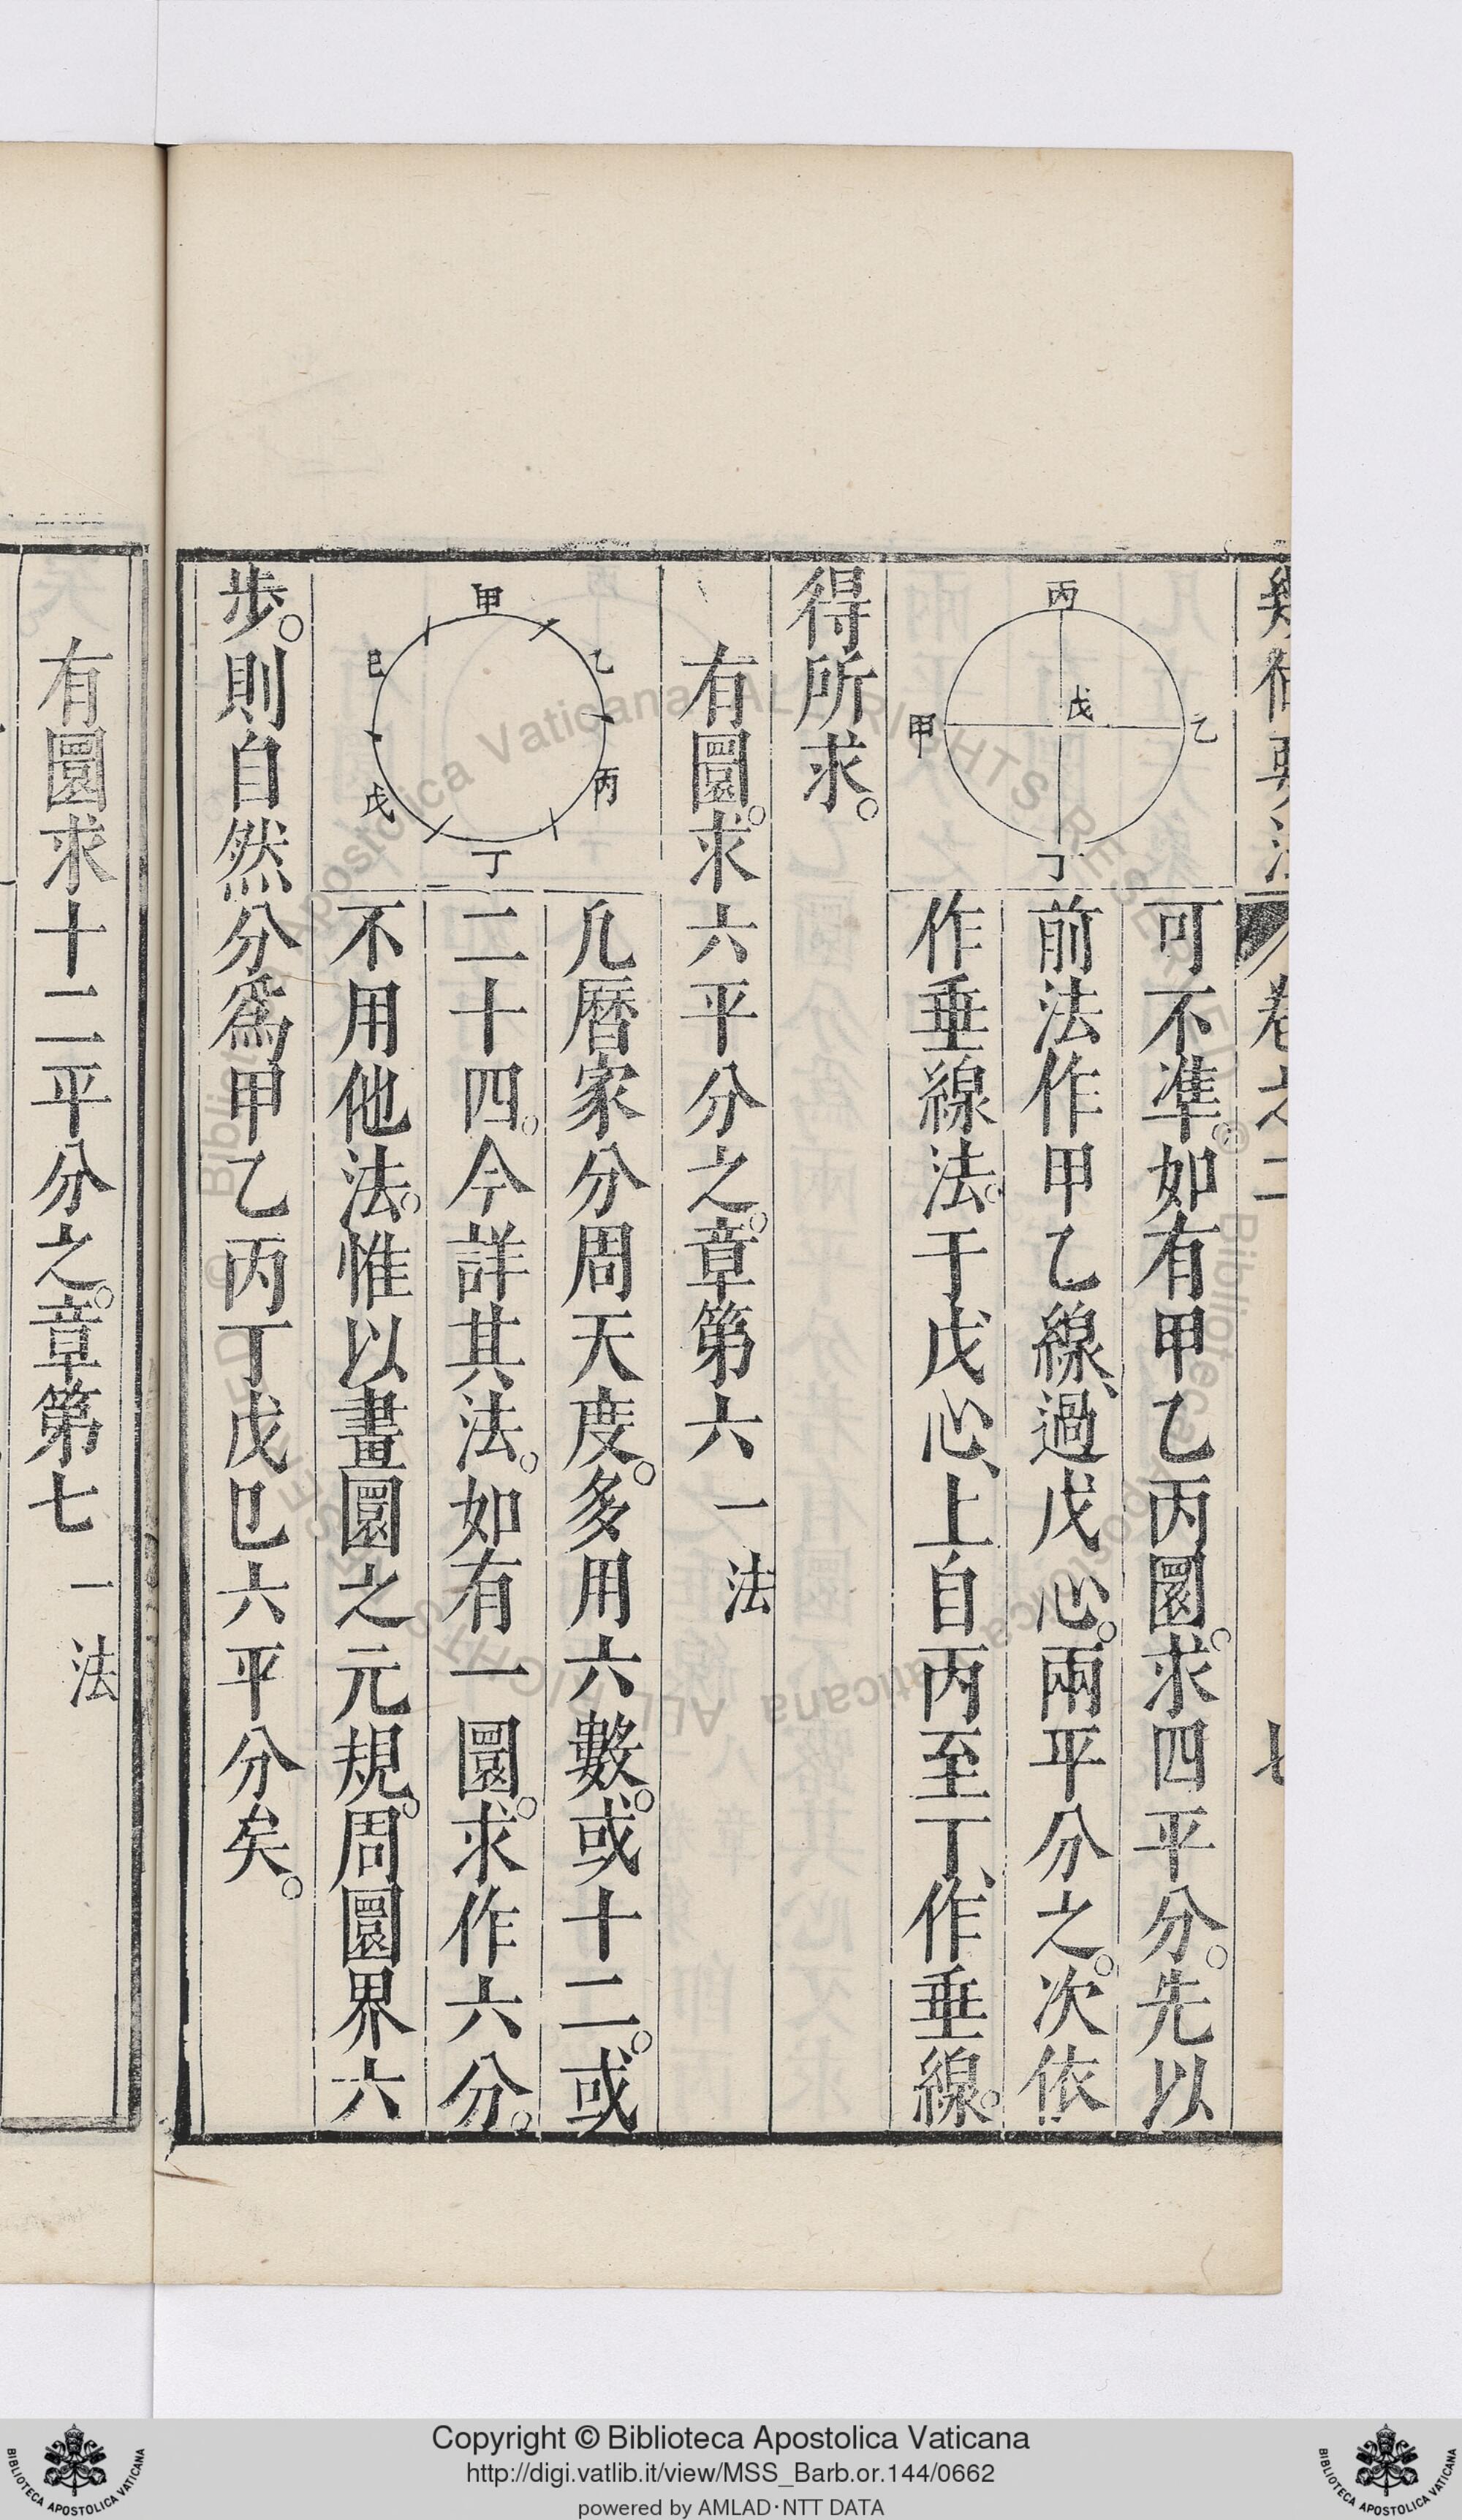 幾何要法
卷之二
七
丙
戊
甲
乙
丁
可不準如有甲乙丙圜。求四平分。先以
前法作甲乙線、過戊心。兩平分之。次依
作垂線法。于戊心、上自丙至丁、作垂線。
得所求。
有圜。求六平分之。章第六 一法
甲
乙
丙
丁
戊
己
凡曆家分周天度。多用六數。或十二。或
二十四。今詳其法。如有一圜。求作六分。
不用他法。惟以畫圜之元規。周圜界六
步。則自然分爲甲乙丙丁戊己六平分矣。
有圜求十二平分之。章第七 一法
Copyright © Biblioteca Apostolica Vaticana
http://digi.vatlib.it/view/MSS_Barb.or.144/0662
powered by AMLAD·NTT DATA
BIBLIOTECA APOSTOLICA VATICANA
BIBLIOTECA APOSTOLICA VATICANA